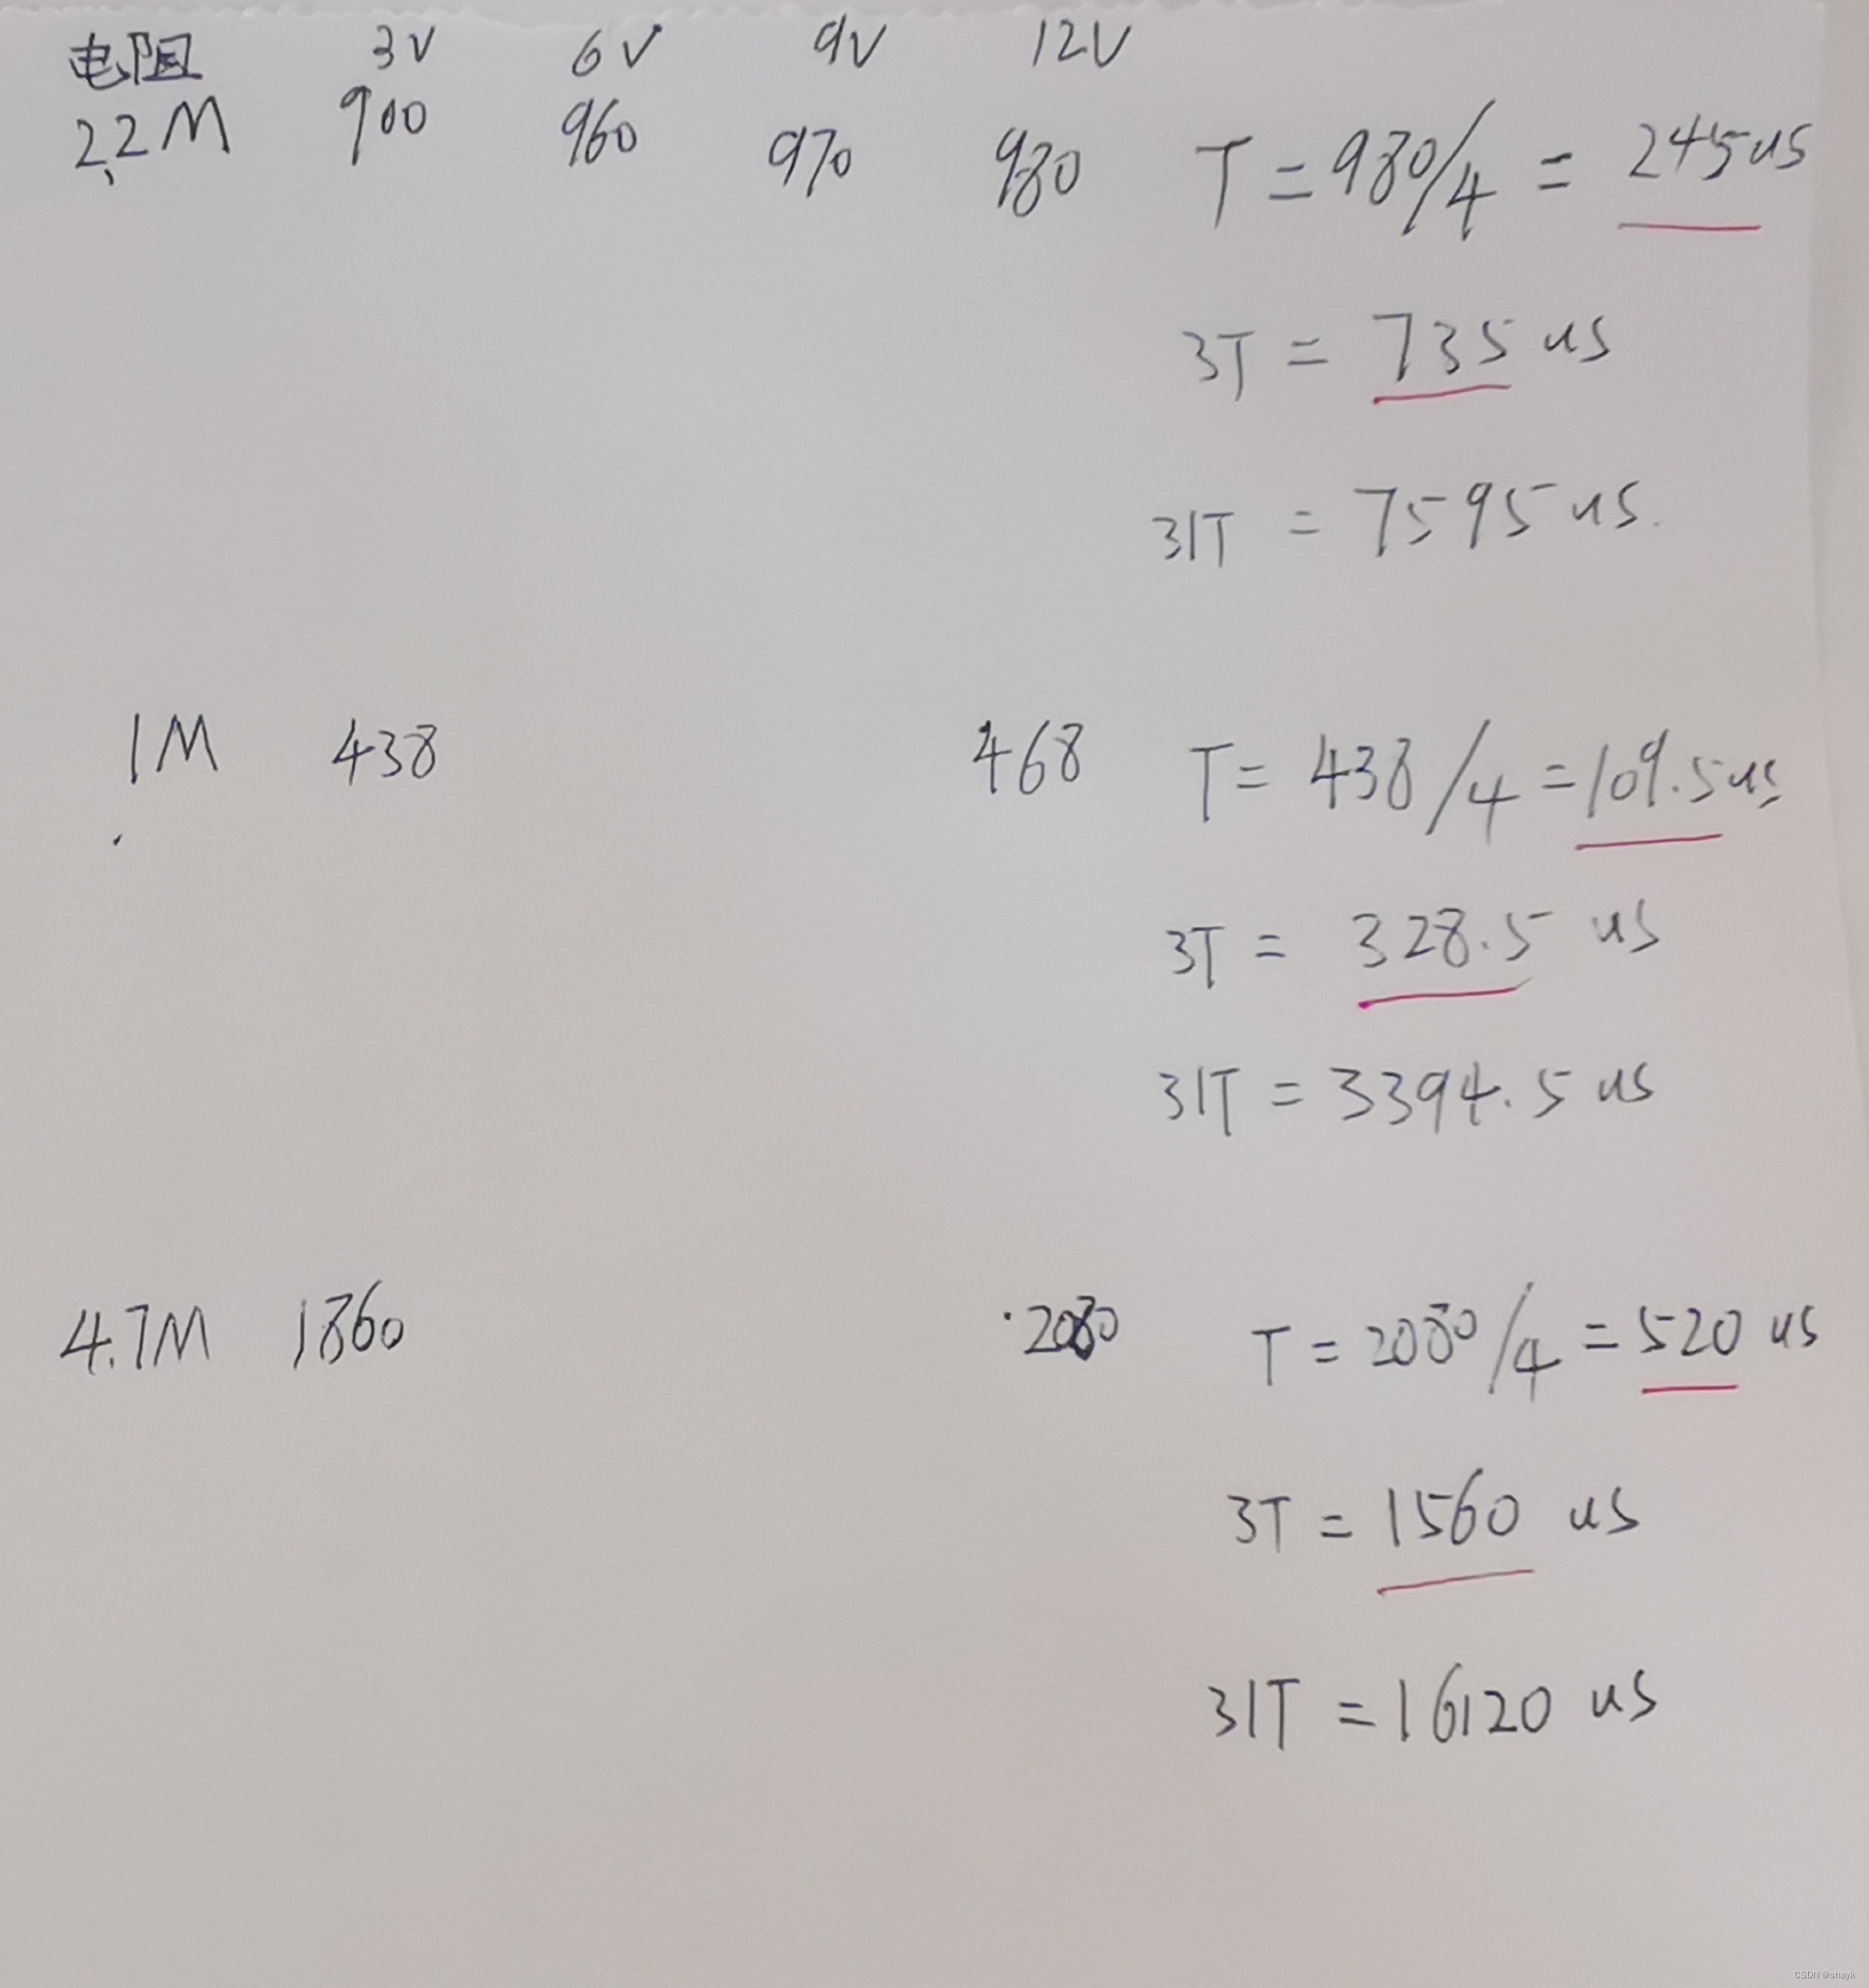 电阻 3V 6V 9V 12V
2.2M 900 960 970 980 T=980/4=245us
3T=735us
31T=7595us.
1M 438 468 T=438/4=109.5us
3T=328.5us
31T=3394.5us
4.7M 1860 2080 T=2080/4=520us
3T=1560us
31T=16120us
CSDN @shayk